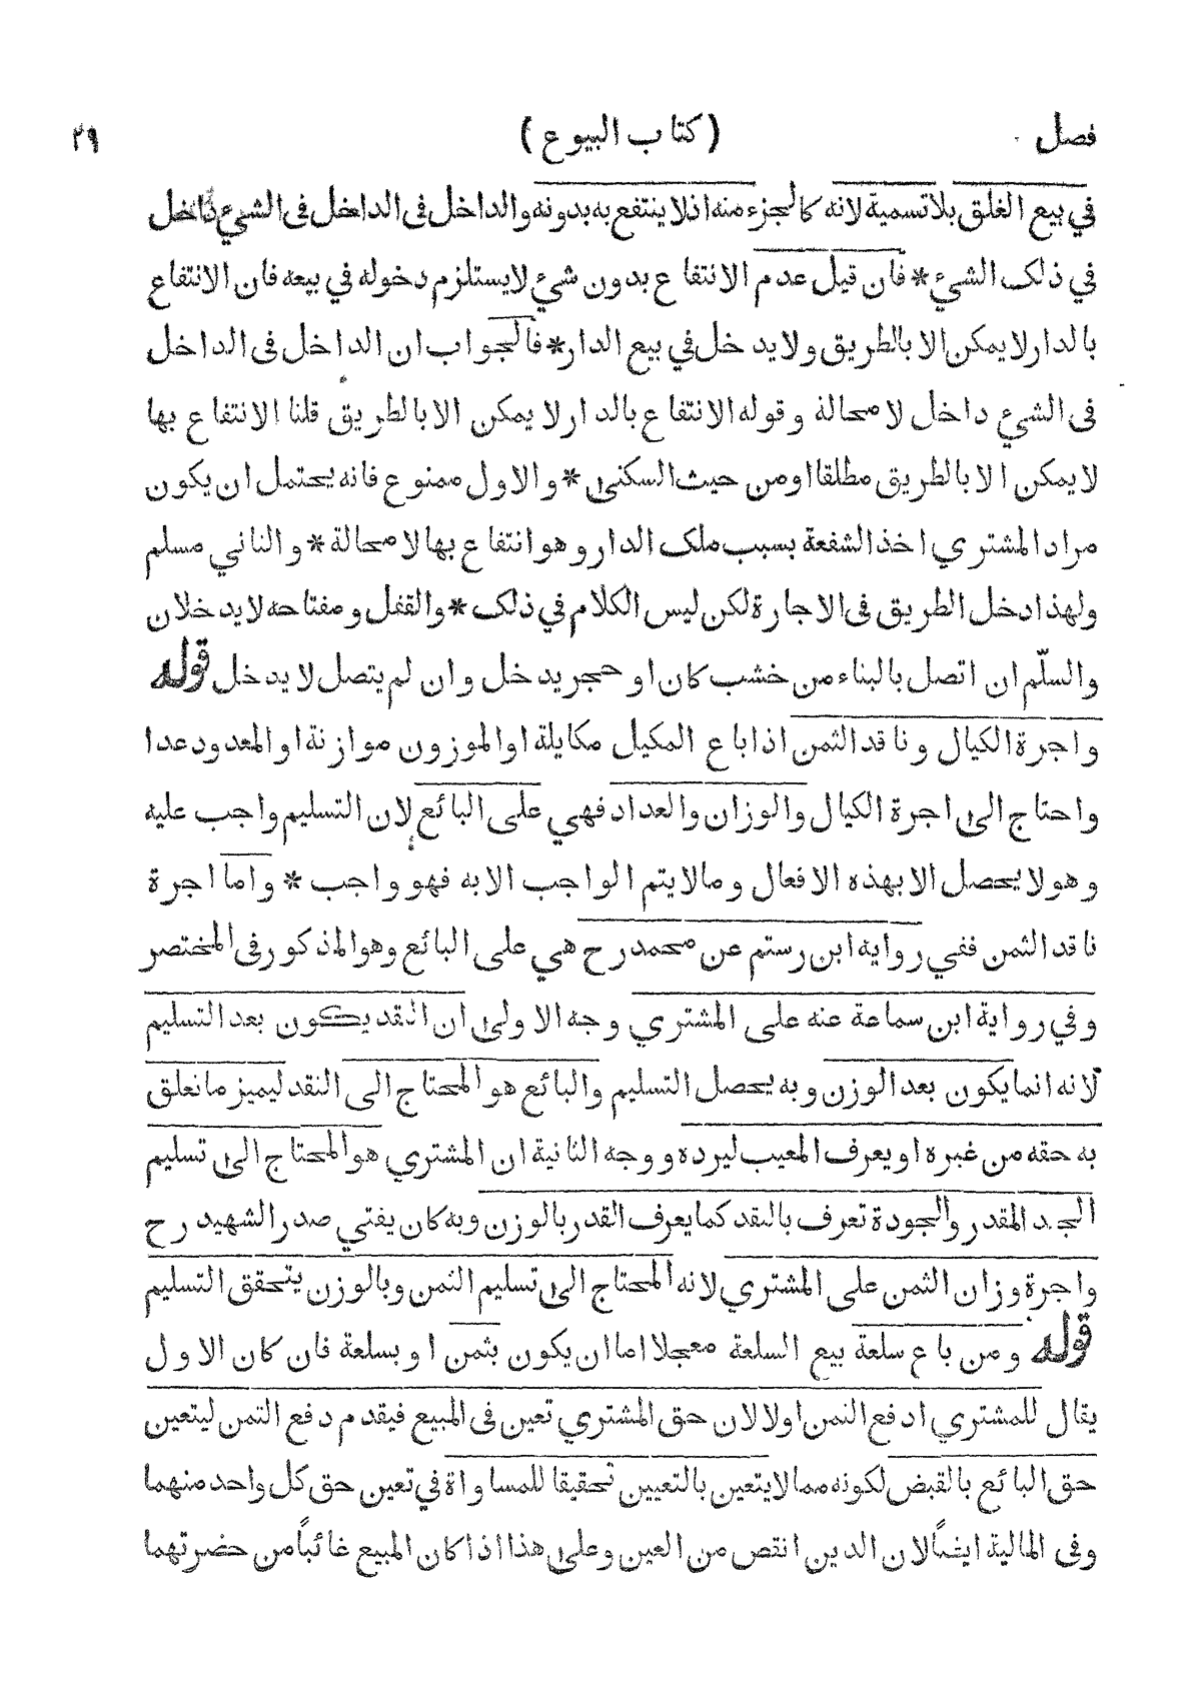 فصل (كتاب البيوع) ٢٩
في بيع الغلق بلا تسمية لانه كالجزء منه اذ لا ينتفع به بدونه والداخل فى الداخل فى الشيء داخل
في ذلك الشيء * فان قيل عدم الانتفاع بدون شيء لا يستلزم دخوله في بيعه فان الانتفاع
بالدار لا يمكن الا بالطريق ولا يدخل في بيع الدار * فالجواب ان الداخل فى الداخل
فى الشيء داخل لا محالة وقوله الانتفاع بالدار لا يمكن الا بالطريق قلنا الانتفاع بها
لا يمكن الا بالطريق مطلقا او من حيث السكنى * والاول ممنوع فانه يحتمل ان يكون
مراد المشتري اخذ الشفعة بسبب ملك الدار وهو انتفاع بها لا محالة * والثاني مسلم
ولهذا دخل الطريق فى الاجارة لكن ليس الكلام في ذلك * والقفل ومفتاحه لا يدخلان
والسلّم ان اتصل بالبناء من خشب كان او حجر يدخل وان لم يتصل لا يدخل قوله
واجرة الكيال وناقد الثمن اذا باع المكيل مكايلة او الموزون موازنة او المعدود عدا
واحتاج الى اجرة الكيال والوزان والعداد فهي على البائع لان التسليم واجب عليه
وهو لا يحصل الا بهذه الافعال وما لا يتم الواجب الا به فهو واجب * واما اجرة
ناقد الثمن ففي رواية ابن رستم عن محمد رح هي على البائع وهو المذكور فى المختصر
وفي رواية ابن سماعة عنه على المشتري وجه الاولى ان النقد يكون بعد التسليم
لانه انما يكون بعد الوزن وبه يحصل التسليم والبائع هو المحتاج الى النقد ليميز ما تعلق
به حقه من غيره او يعرف المعيب ليرده ووجه الثانية ان المشتري هو المحتاج الى تسليم
الجيد المقدر والجودة تعرف بالنقد كما يعرف القدر بالوزن وبه كان يفتي صدر الشهيد رح
واجرة وزان الثمن على المشتري لانه المحتاج الى تسليم الثمن وبالوزن يتحقق التسليم
قوله ومن باع سلعة بيع السلعة معجلا اما ان يكون بثمن او بسلعة فان كان الاول
يقال للمشتري ادفع الثمن اولا لان حق المشتري تعين فى المبيع فيقدم دفع الثمن ليتعين
حق البائع بالقبض لكونه مما لا يتعين بالتعيين تحقيقا للمساواة في تعين حق كل واحد منهما
وفى المالية ايضاً لان الدين انقص من العين وعلى هذا اذا كان المبيع غائباً من حضرتهما